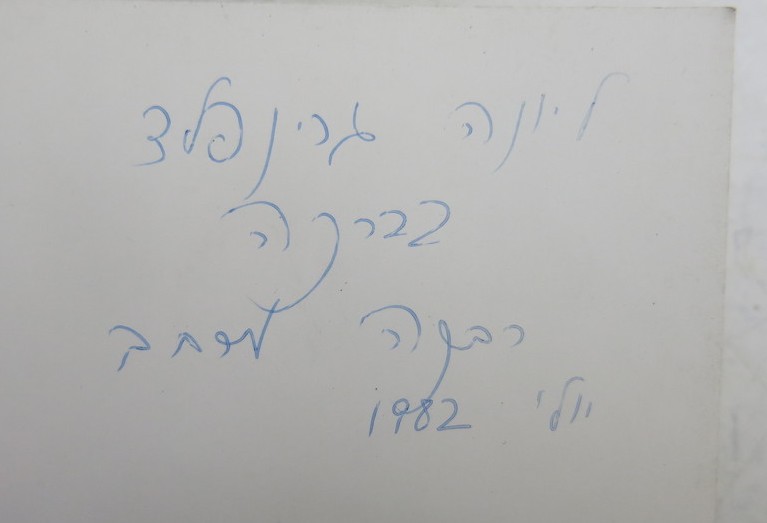 ליונה גרינפלד
בברכה
רבקה מרחב
יולי 1982